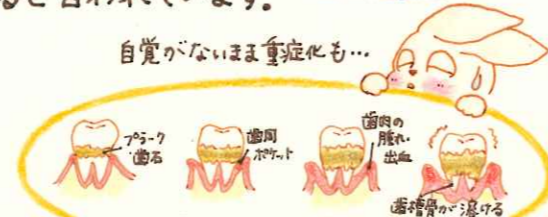 ると言われています。
自覚がないまま重症化も…
プラーク
歯石
歯周
ポケット
歯肉の
腫れ・
出血
歯槽骨が溶ける